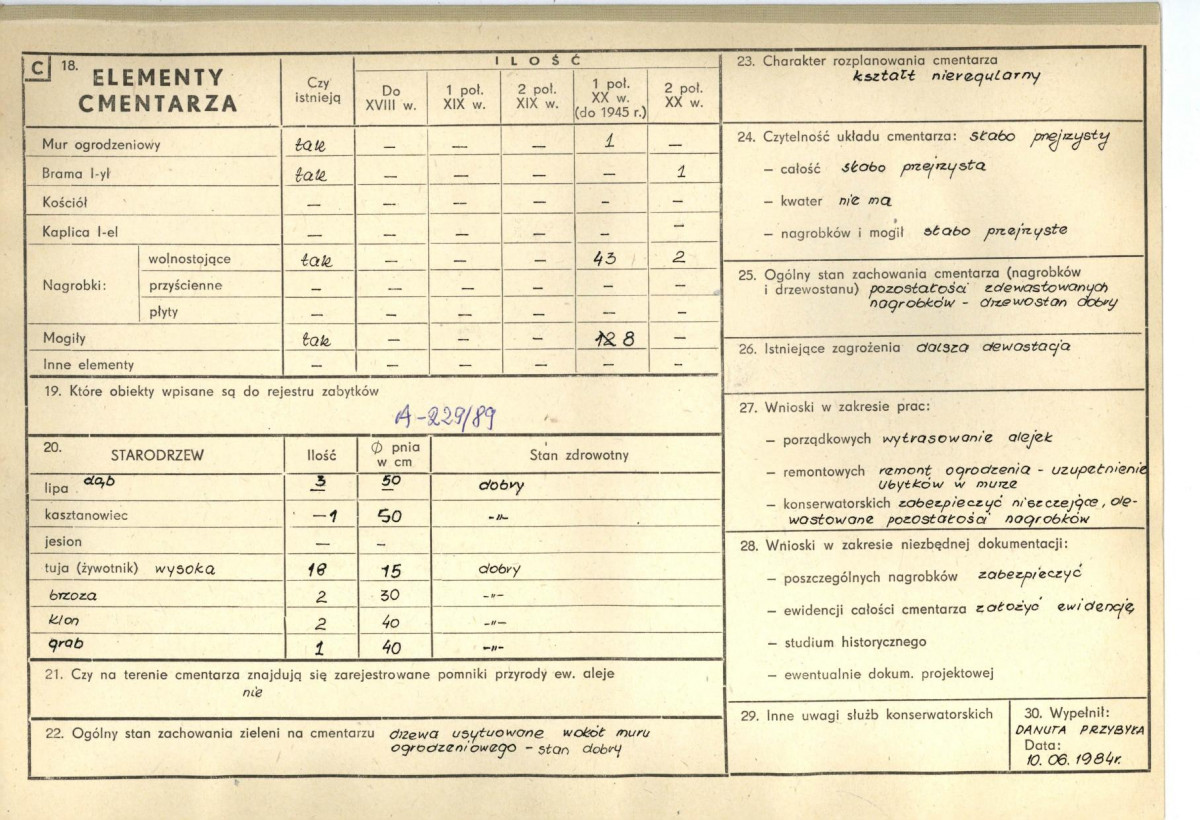 C 18. ELEMENTY CMENTARZA
Czy istnieją
ILOŚĆ
Do XVIII w.
1 poł. XIX w.
2 poł. XIX w.
1 poł. XX w. (do 1945 r.)
2 poł. XX w.
Mur ogrodzeniowy tak — — — 1 —
Brama I-ył tak — — — — 1
Kościół — — — — - -
Kaplica I-el — — — — - —
Nagrobki:
wolnostojące tak — — — 43 2
przyścienne — — — — — —
płyty — — — — — —
Mogiły tak — — — 12 8 —
Inne elementy — — — — — —
19. Które obiekty wpisane są do rejestru zabytków
A-229/89
20. STARODRZEW Ilość Ø pnia w cm Stan zdrowotny
lipa dąb 3 50 dobry
kasztanowiec —1 50 -"-
jesion — -
tuja (żywotnik) wysoka 18 15 dobry
brzoza 2 30 -"-
klon 2 40 -"-
grab 1 40 -"-
21. Czy na terenie cmentarza znajdują się zarejestrowane pomniki przyrody ew. aleje
nie
22. Ogólny stan zachowania zieleni na cmentarzu drzewa usytuowane wokół muru
ogrodzeniowego - stan dobry
23. Charakter rozplanowania cmentarza
kształt nieregularny
24. Czytelność układu cmentarza: słabo prejrzysty
— całość słabo przejrzysta
— kwater nie ma
— nagrobków i mogił słabo przejrzyste
25. Ogólny stan zachowania cmentarza (nagrobków
i drzewostanu) pozostałości zdewastowanych
nagrobków - drzewostan dobry
26. Istniejące zagrożenia dalsza dewastacja
27. Wnioski w zakresie prac:
— porządkowych wytrasowanie alejek
— remontowych remont ogrodzenia - uzupełnienie
ubytków w murze
— konserwatorskich zabezpieczyć niszczejące, de-
wastowane pozostałości nagrobków
28. Wnioski w zakresie niezbędnej dokumentacji:
— poszczególnych nagrobków zabezpieczyć
— ewidencji całości cmentarza założyć ewidencję
— studium historycznego
— ewentualnie dokum. projektowej
29. Inne uwagi służb konserwatorskich
30. Wypełnił:
DANUTA PRZYBYŁA
Data:
10.06.1984r.